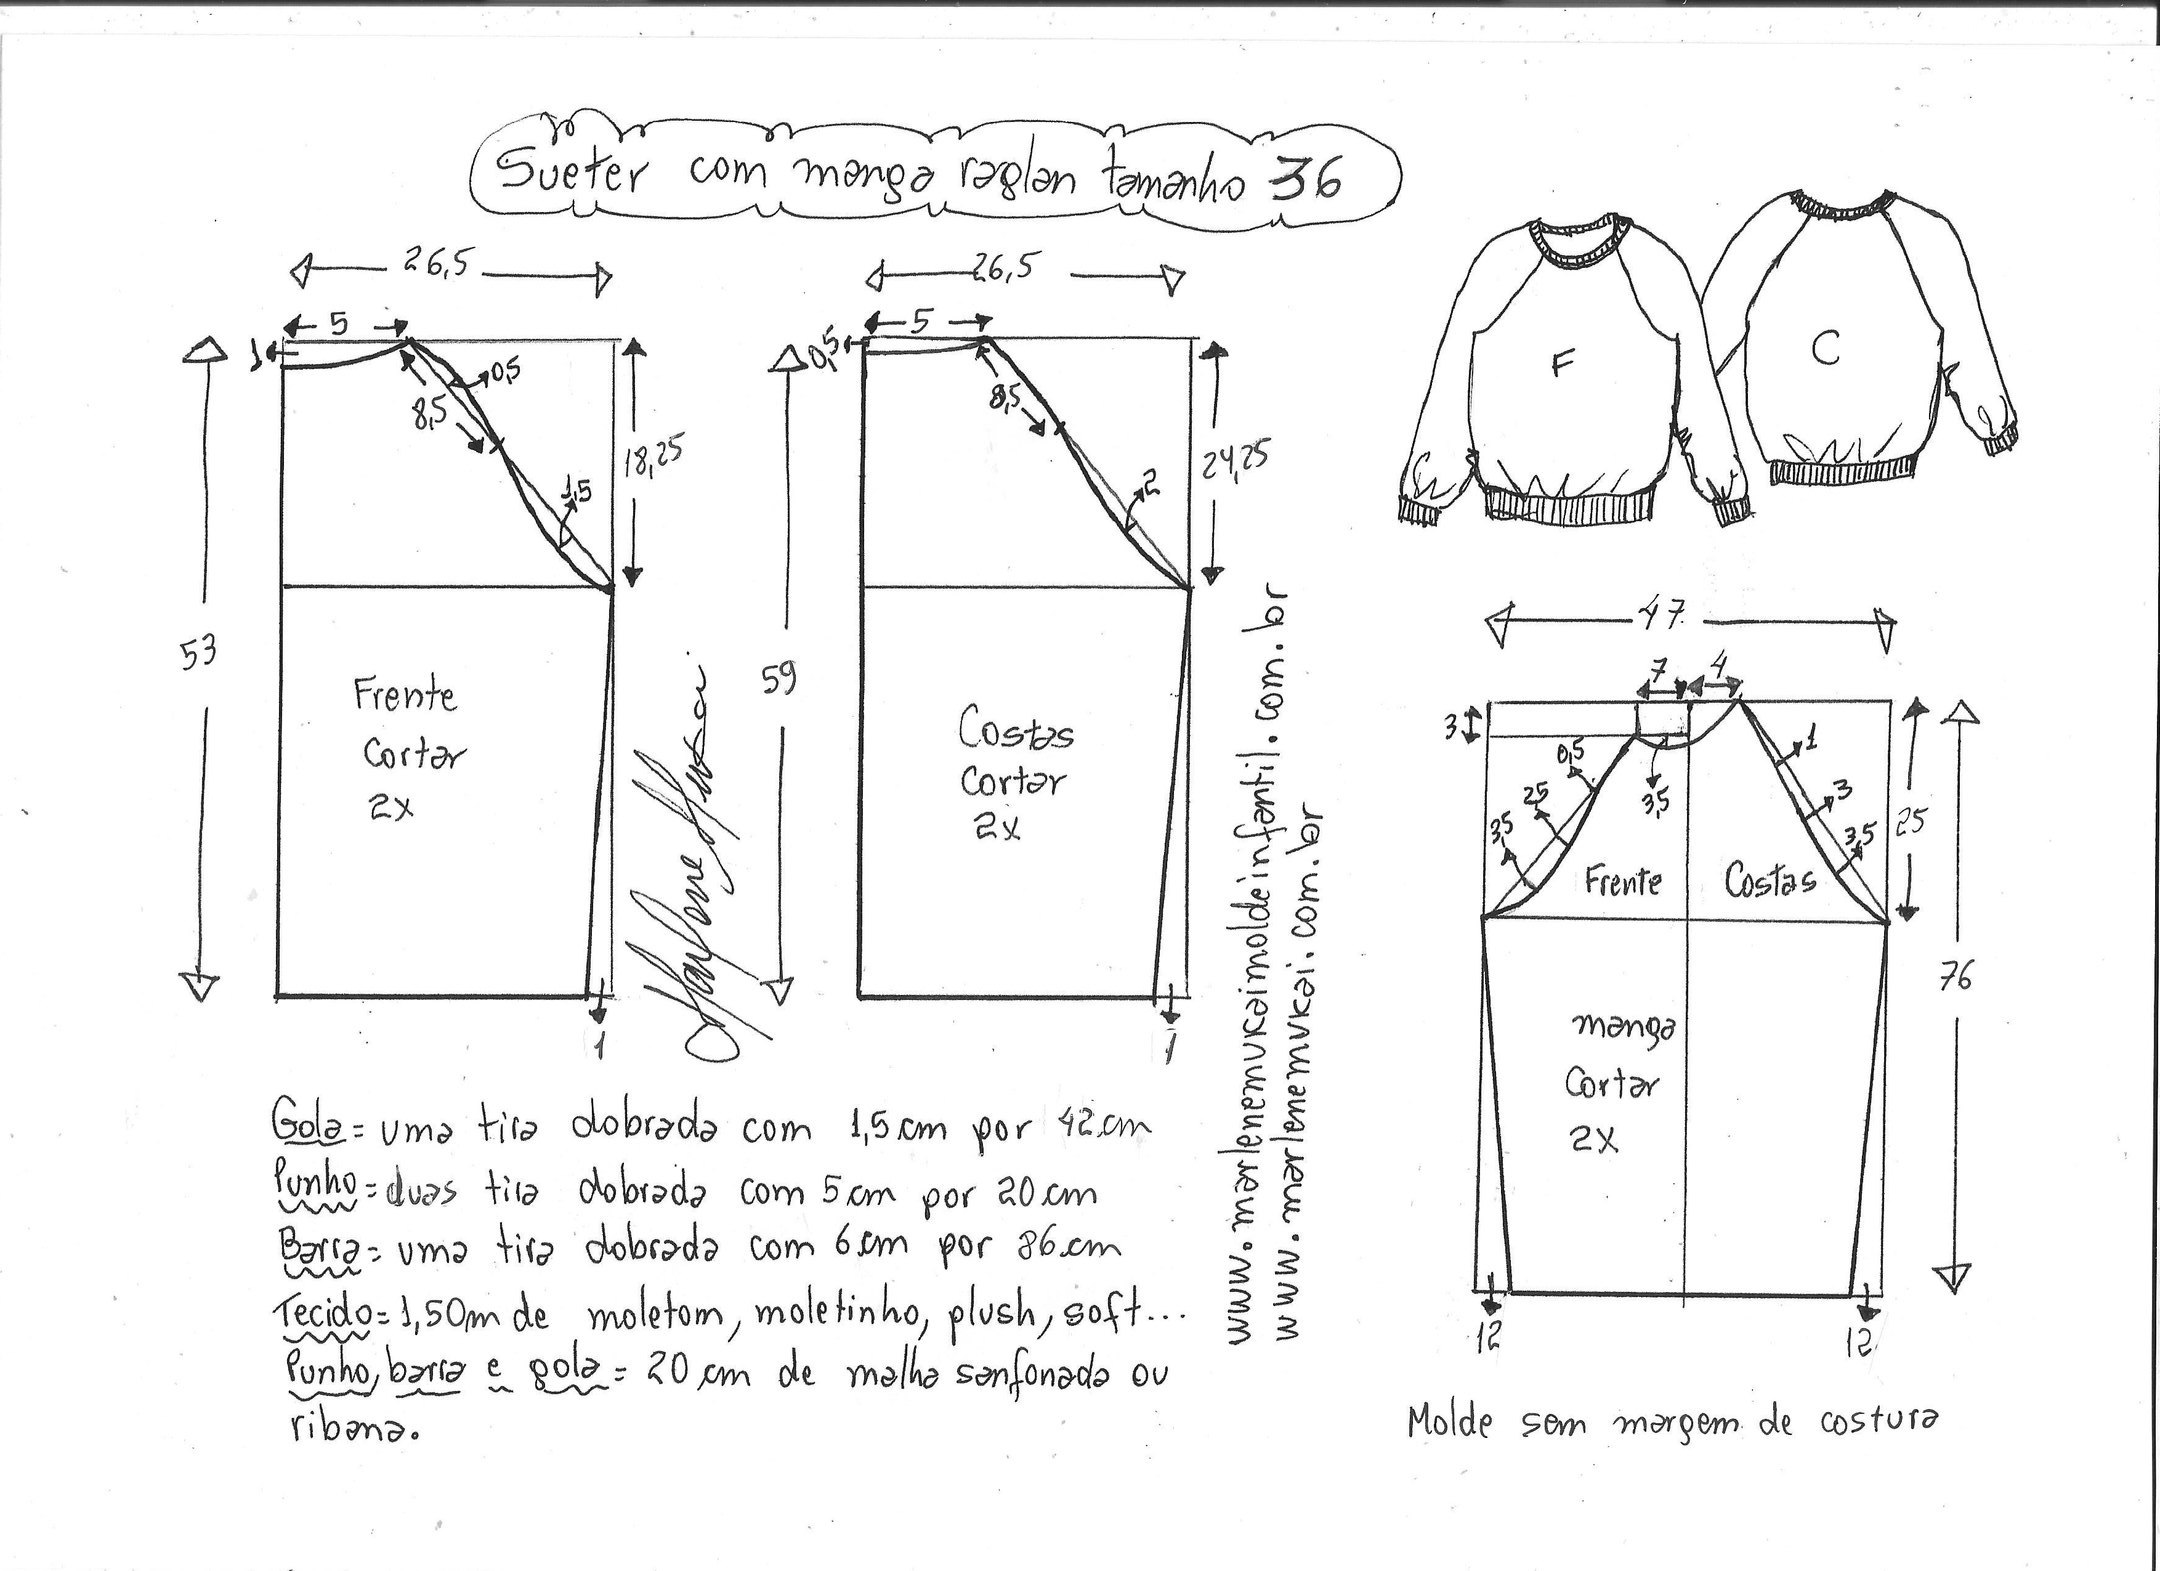 Sueter com manga raglan tamanho 36
26,5
5
1
0,5
8,5
18,25
1,5
53
Frente
Cortar
2x
1
26,5
5
0,5
8,5
24,25
2
59
Costas
Cortar
2x
1
Marlene Mukai
www.marlenemukaimoldeinfantil.com.br
www.marlenemukai.com.br
F
C
47
7
4
3
0,5
2,5
3,5
3,5
1
3
3,5
25
76
Frente
Costas
manga
Cortar
2x
12
12
Gola = uma tira dobrada com 1,5 cm por 42 cm
Punho = duas tira dobrada com 5 cm por 20 cm
Barra = uma tira dobrada com 6 cm por 86 cm
Tecido = 1,50m de moletom, moletinho, plush, soft...
Punho, barra e gola = 20 cm de malha sanfonada ou
ribana.
Molde sem margem de costura